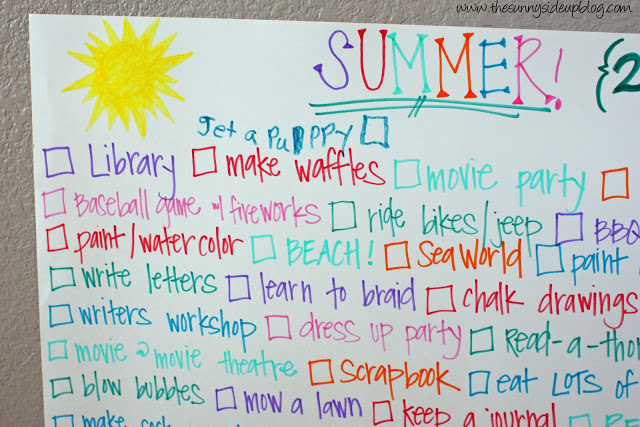 www.thesunnysideupblog.com
SUMMER! {2
Jet a Pupppy
Library make waffles movie party
Baseball game w/ fireworks ride bikes/jeep BBQ
paint/watercolor BEACH! Sea World paint
write letters learn to braid chalk drawings
writers workshop dress up party Read-a-tho
movie @ movie theatre Scrapbook eat LOTS of
blow bubbles mow a lawn keep a journal
make